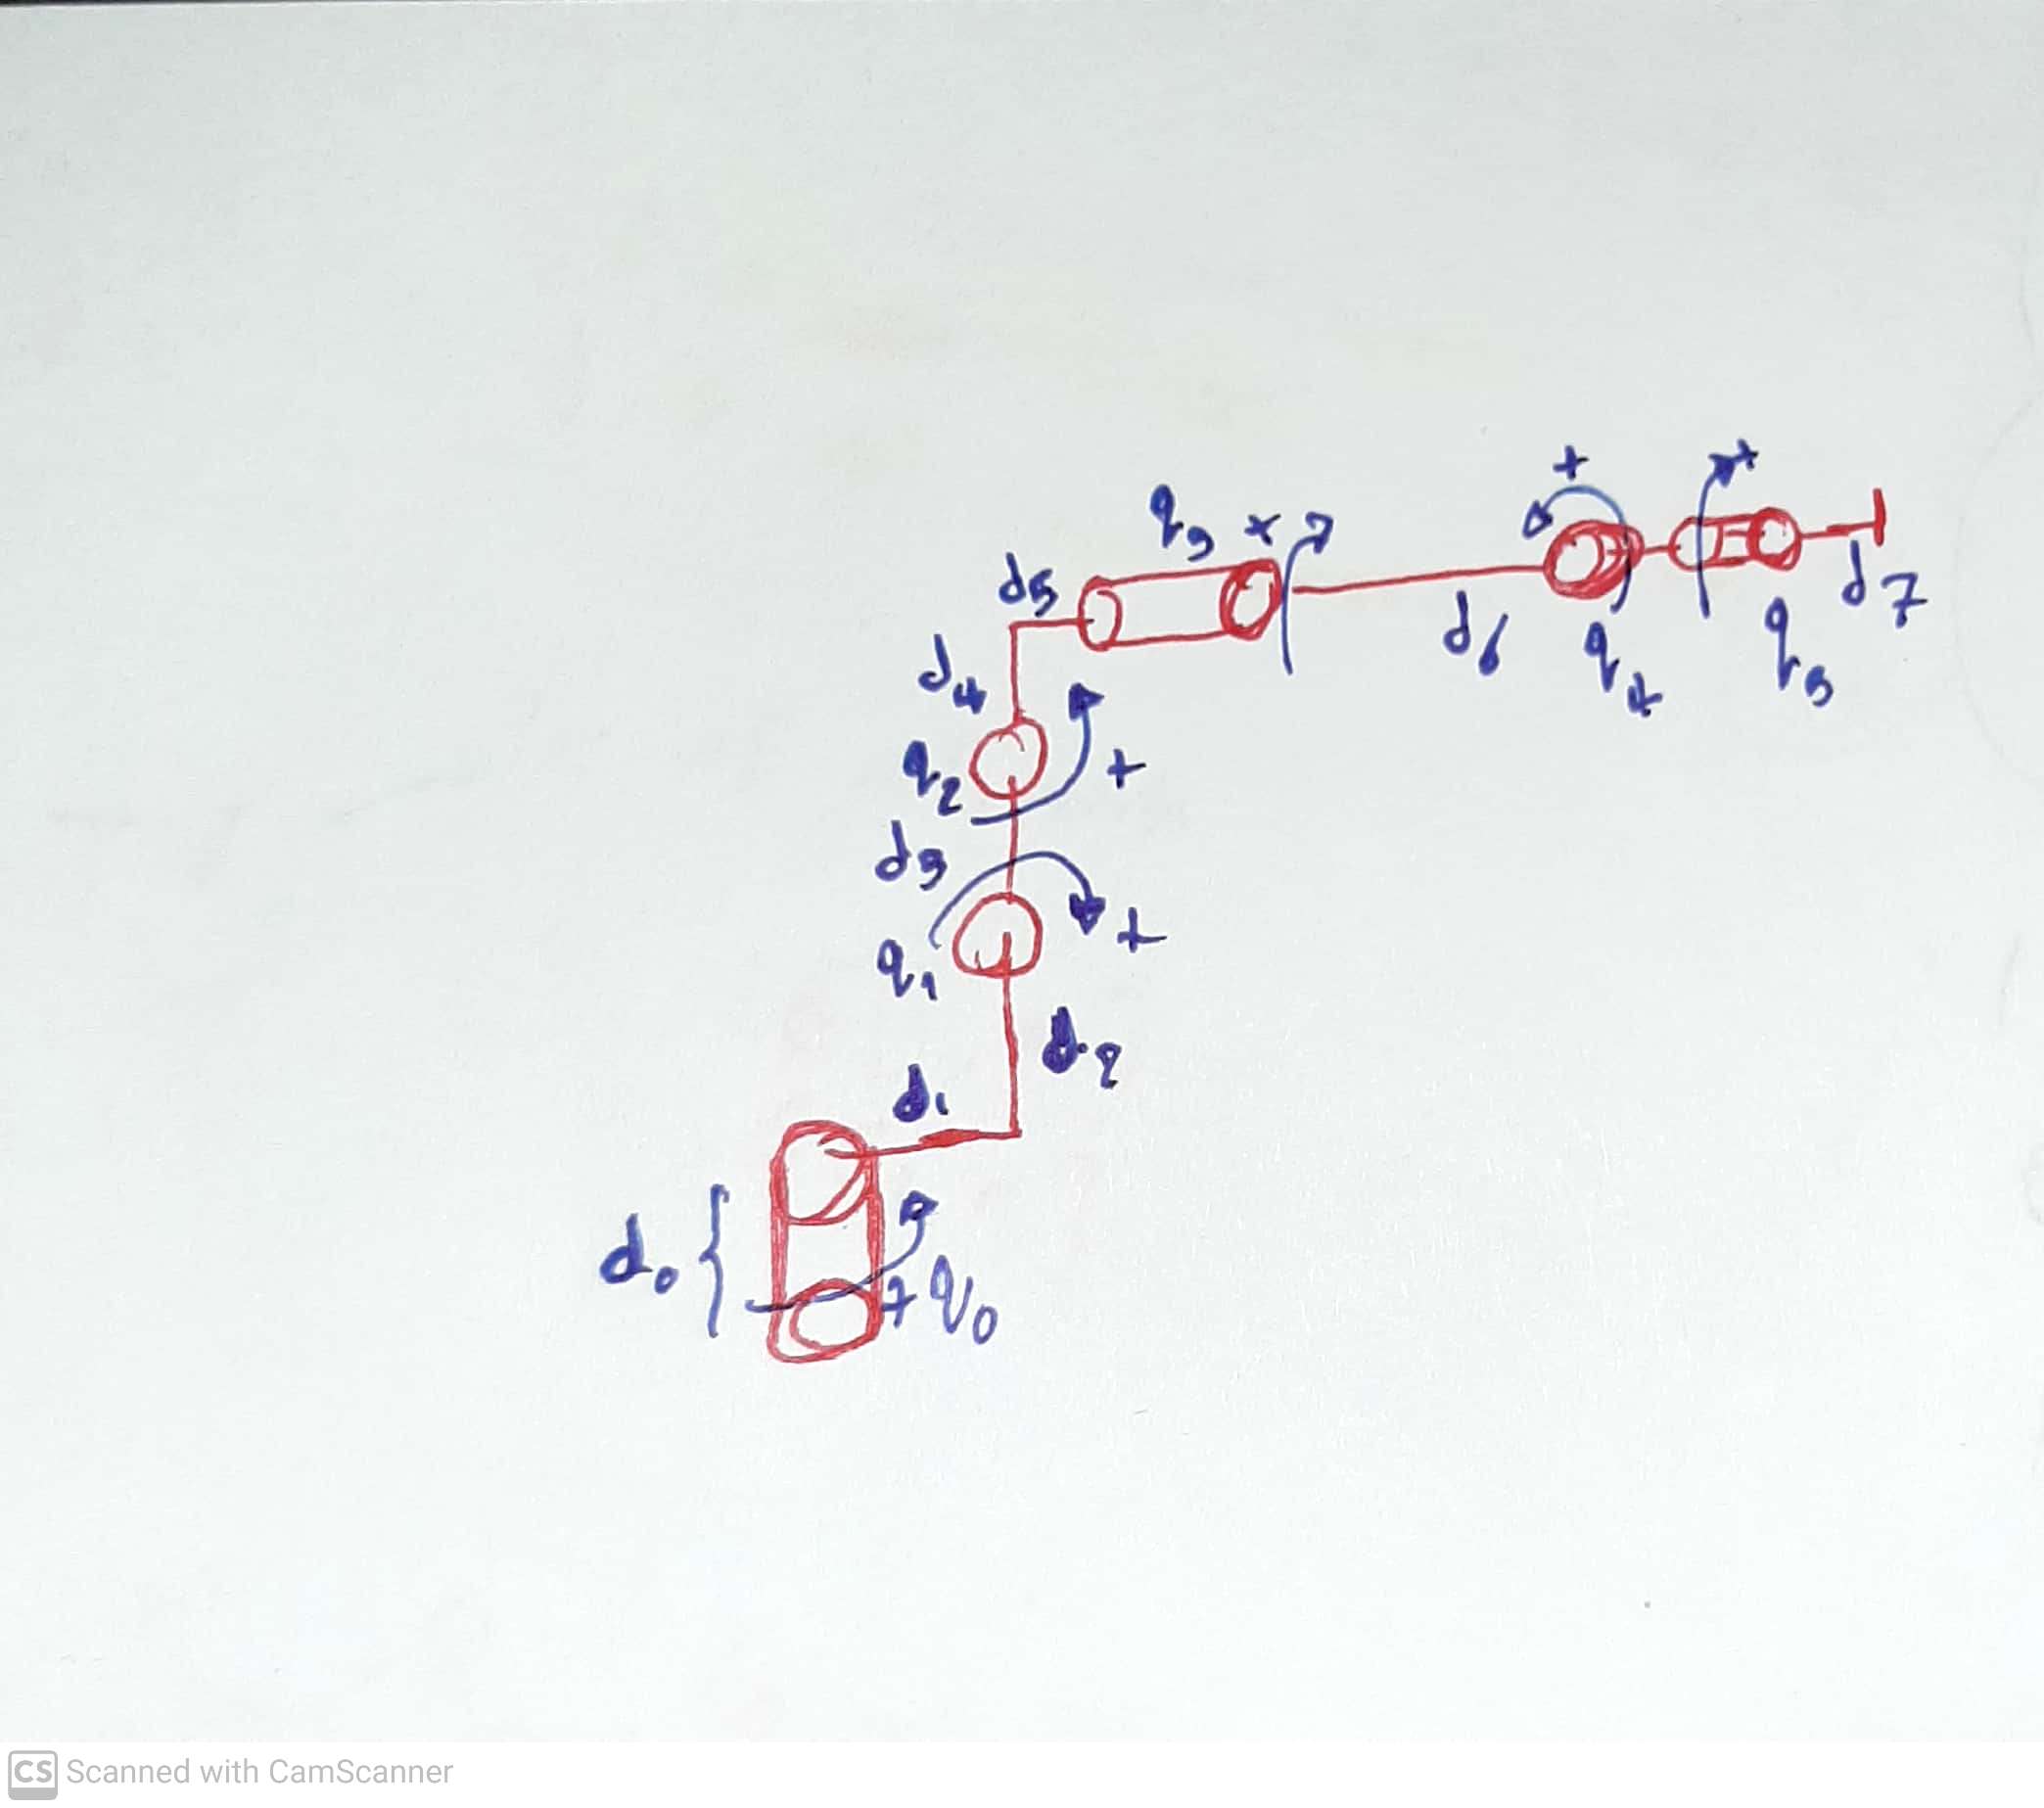 +
+
q3 + d5
d6
q4
q5
d7
d4
q2
+
d3
q1
+
d2
d1
d0
+ q0
CS Scanned with CamScanner